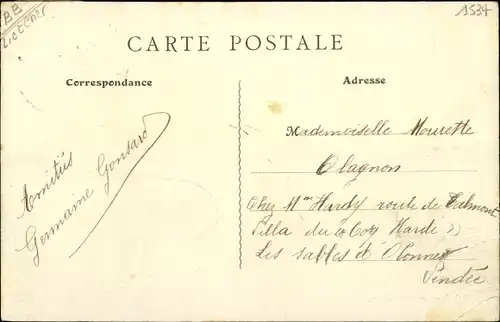 BB
1534
CARTE POSTALE
Correspondance
Adresse
Amitiés
Germaine Gonsard
Mademoiselle Mourette
Olagnon
Chez Mme Hardy route de Talmont
Villa du Coq Hardi
Les Sables d'Olonnes
Vendée